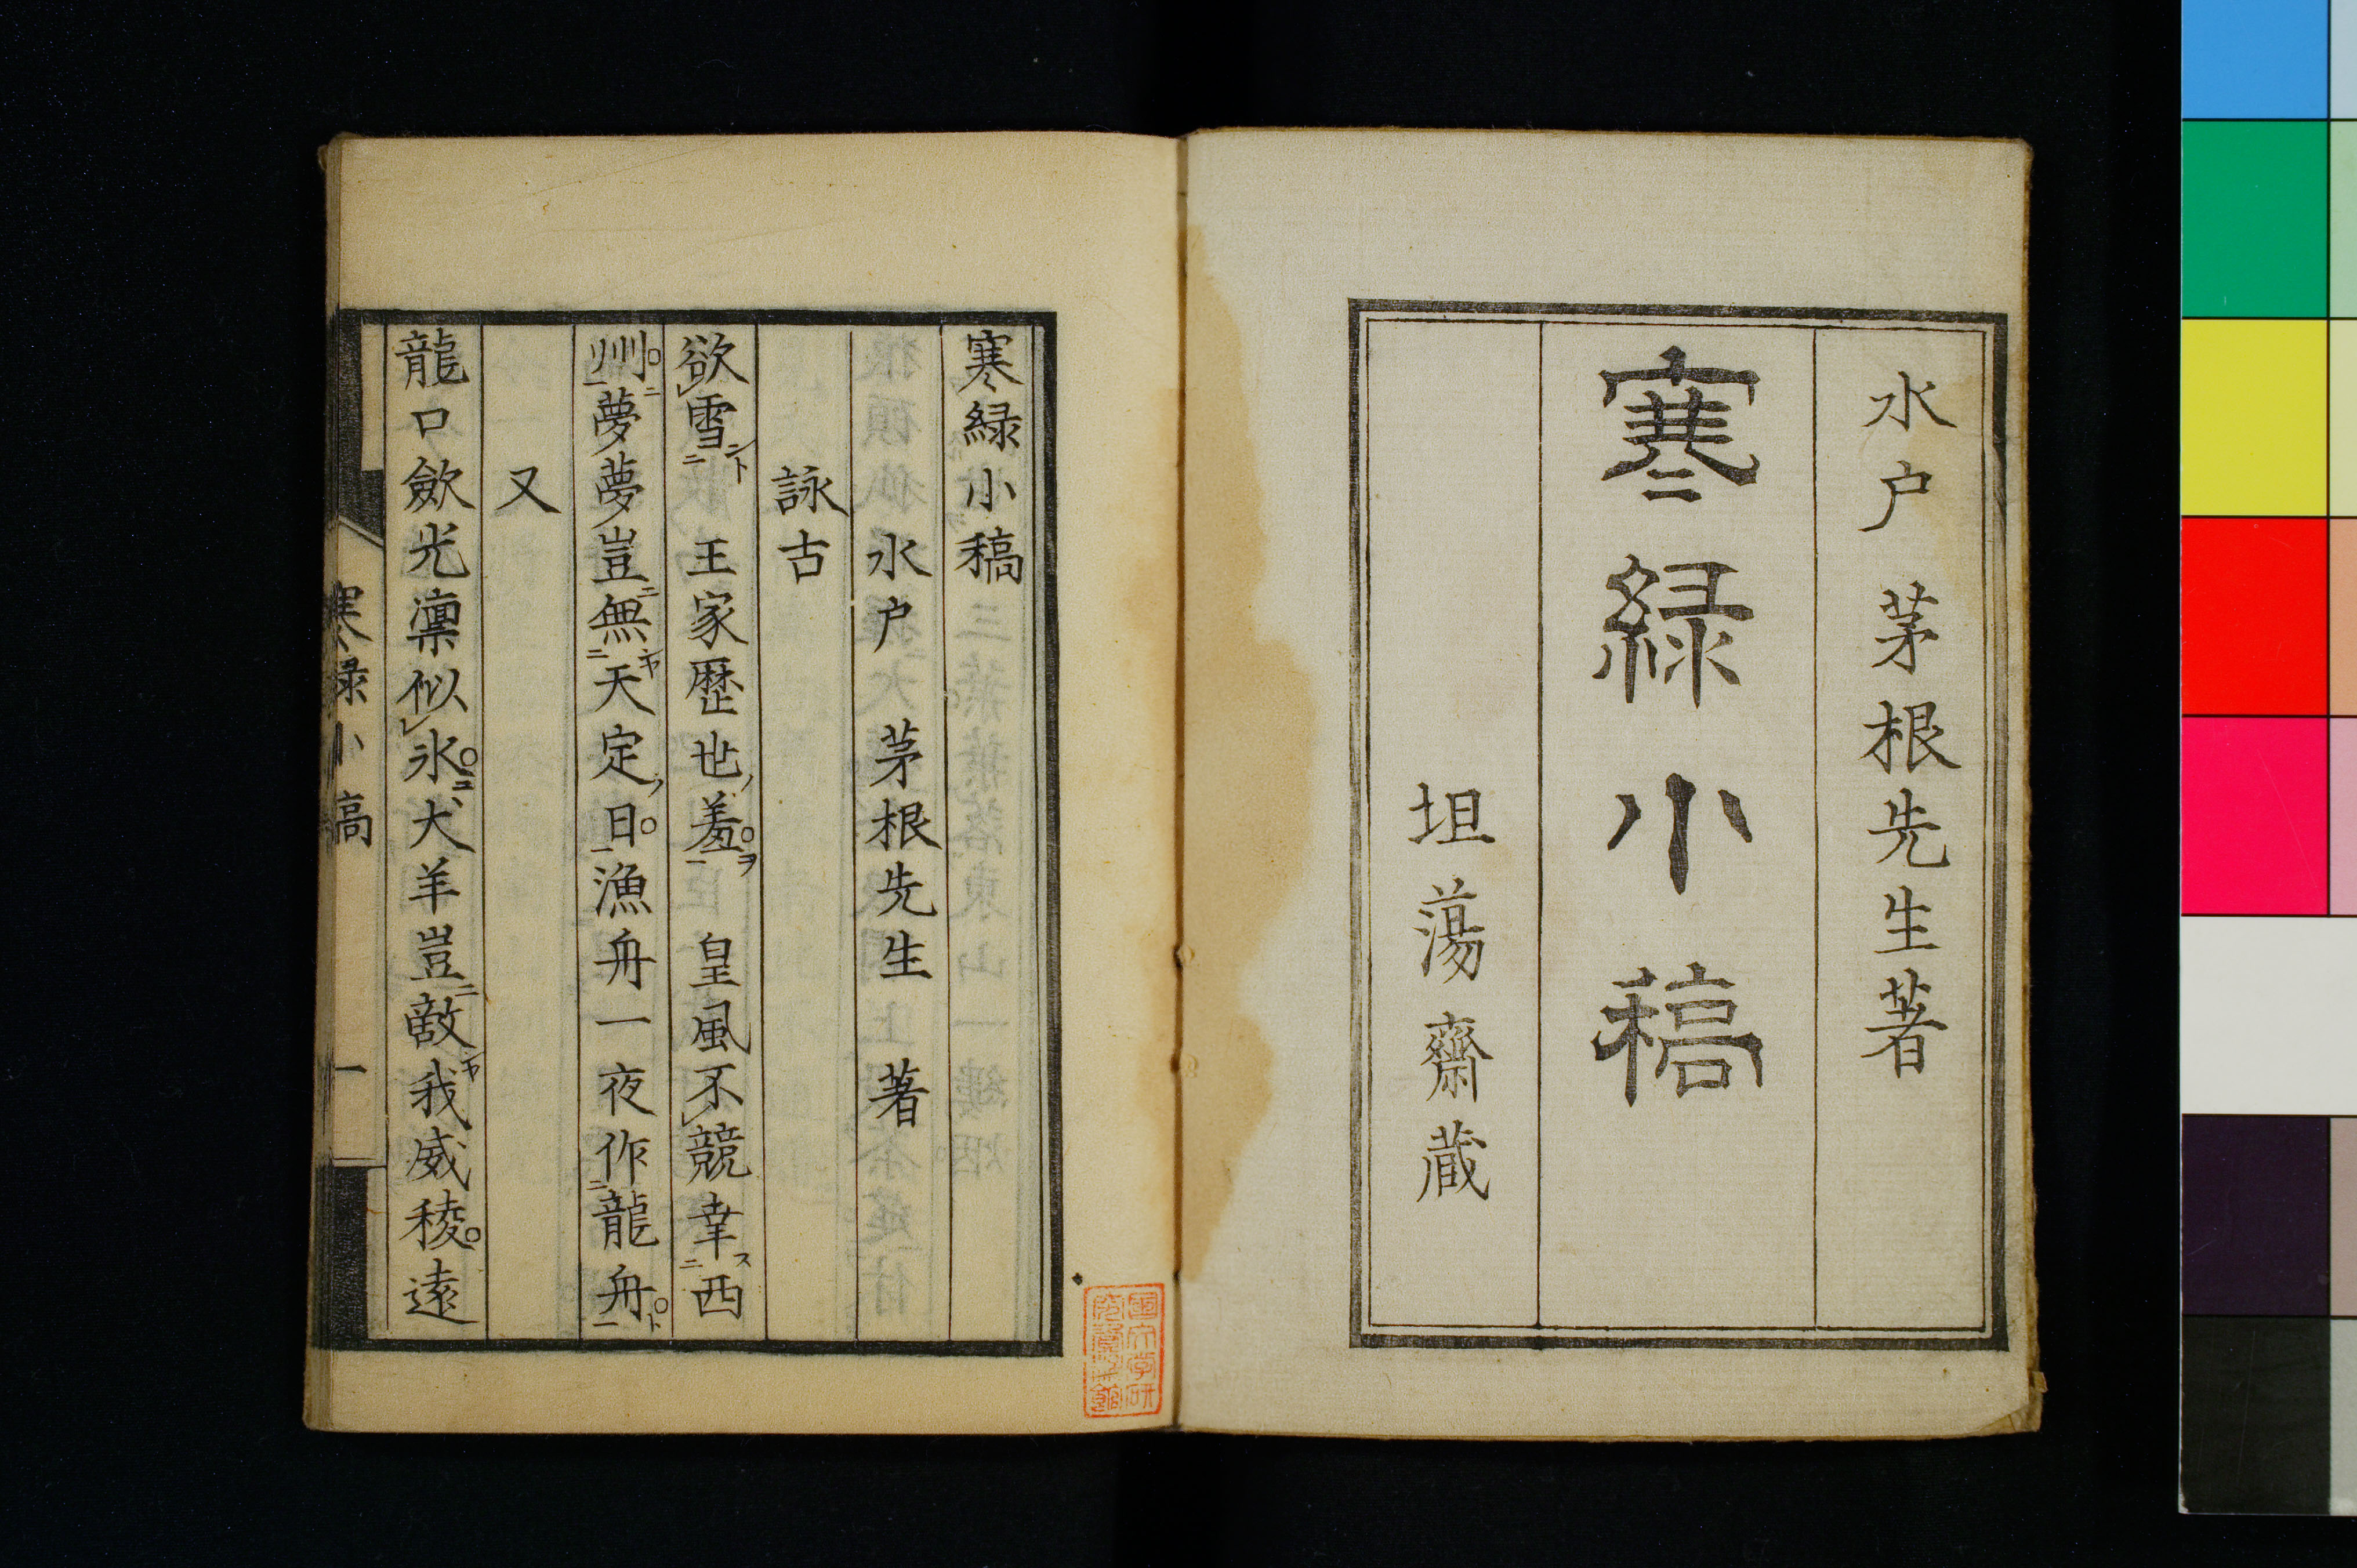 水户 茅根先生著
寒緑小稿
坦蕩齋蔵
寒緑小稿
水户 茅根先生 著
詠古
欲雪 王家歴世羞 皇風不競幸西
州夢夢豈無天定日漁舟一夜作龍舟
又
龍口歛光凛似氷犬羊豈敵我威稜遠
寒緑小稿 一